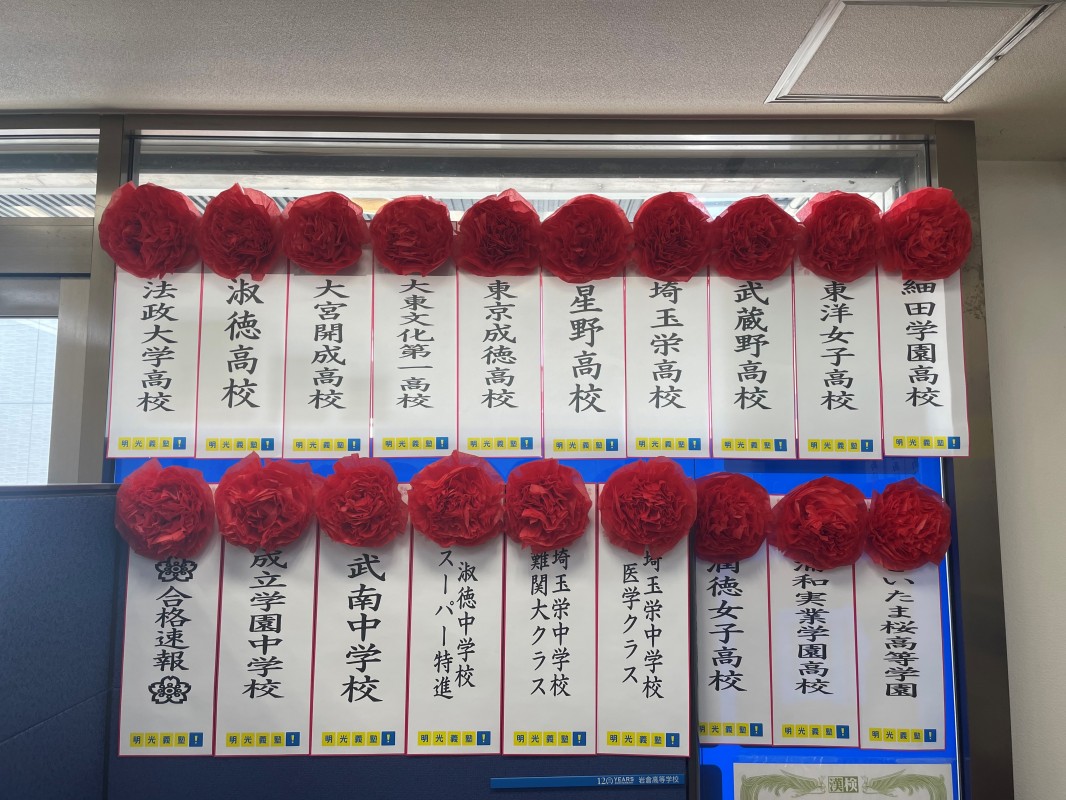 法政大学高校
明光義塾!
淑徳高校
明光義塾!
大宮開成高校
明光義塾!
大東文化第一高校
明光義塾!
東京成徳高校
明光義塾!
星野高校
明光義塾!
埼玉栄高校
明光義塾!
武蔵野高校
明光義塾!
東洋女子高校
明光義塾!
細田学園高校
明光義塾!
合格速報
明光義塾!
成立学園中学校
明光義塾!
武南中学校
明光義塾!
淑徳中学校
スーパー特進
明光義塾!
埼玉栄中学校
難関大クラス
明光義塾!
埼玉栄中学校
医学クラス
明光義塾!
潤徳女子高校
明光義塾!
浦和実業学園高校
明光義塾!
さいたま桜高等学園
明光義塾!
120 YEARS 岩倉高等学校
漢検